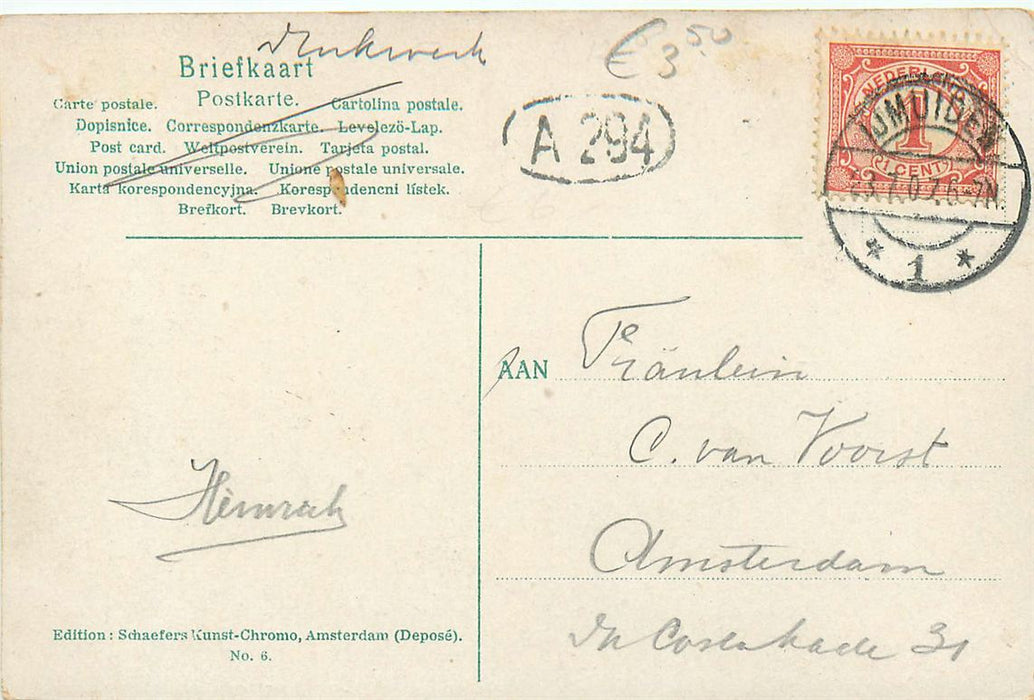 Drukwerk
€ 3,50
Briefkaart
Postkarte.
Carte postale. Cartolina postale.
Dopisnice. Correspondenzkarte. Levelezö-Lap.
Post card. Weltpostverein. Tarjeta postal.
Union postale universelle. Unione postale universale.
Karta korespondencyjna. Korespondencni lístek.
Brefkort. Brevkort.
A 294
NEDERLAND
1
1 CENT
IJMUIDEN
3.7.07.6-7N.
* 1 *
AAN Fräulein
C. van Voorst
Amsterdam
kade 30
Heinrich
Edition: Schaefers Kunst-Chromo, Amsterdam (Deposé).
No. 6.